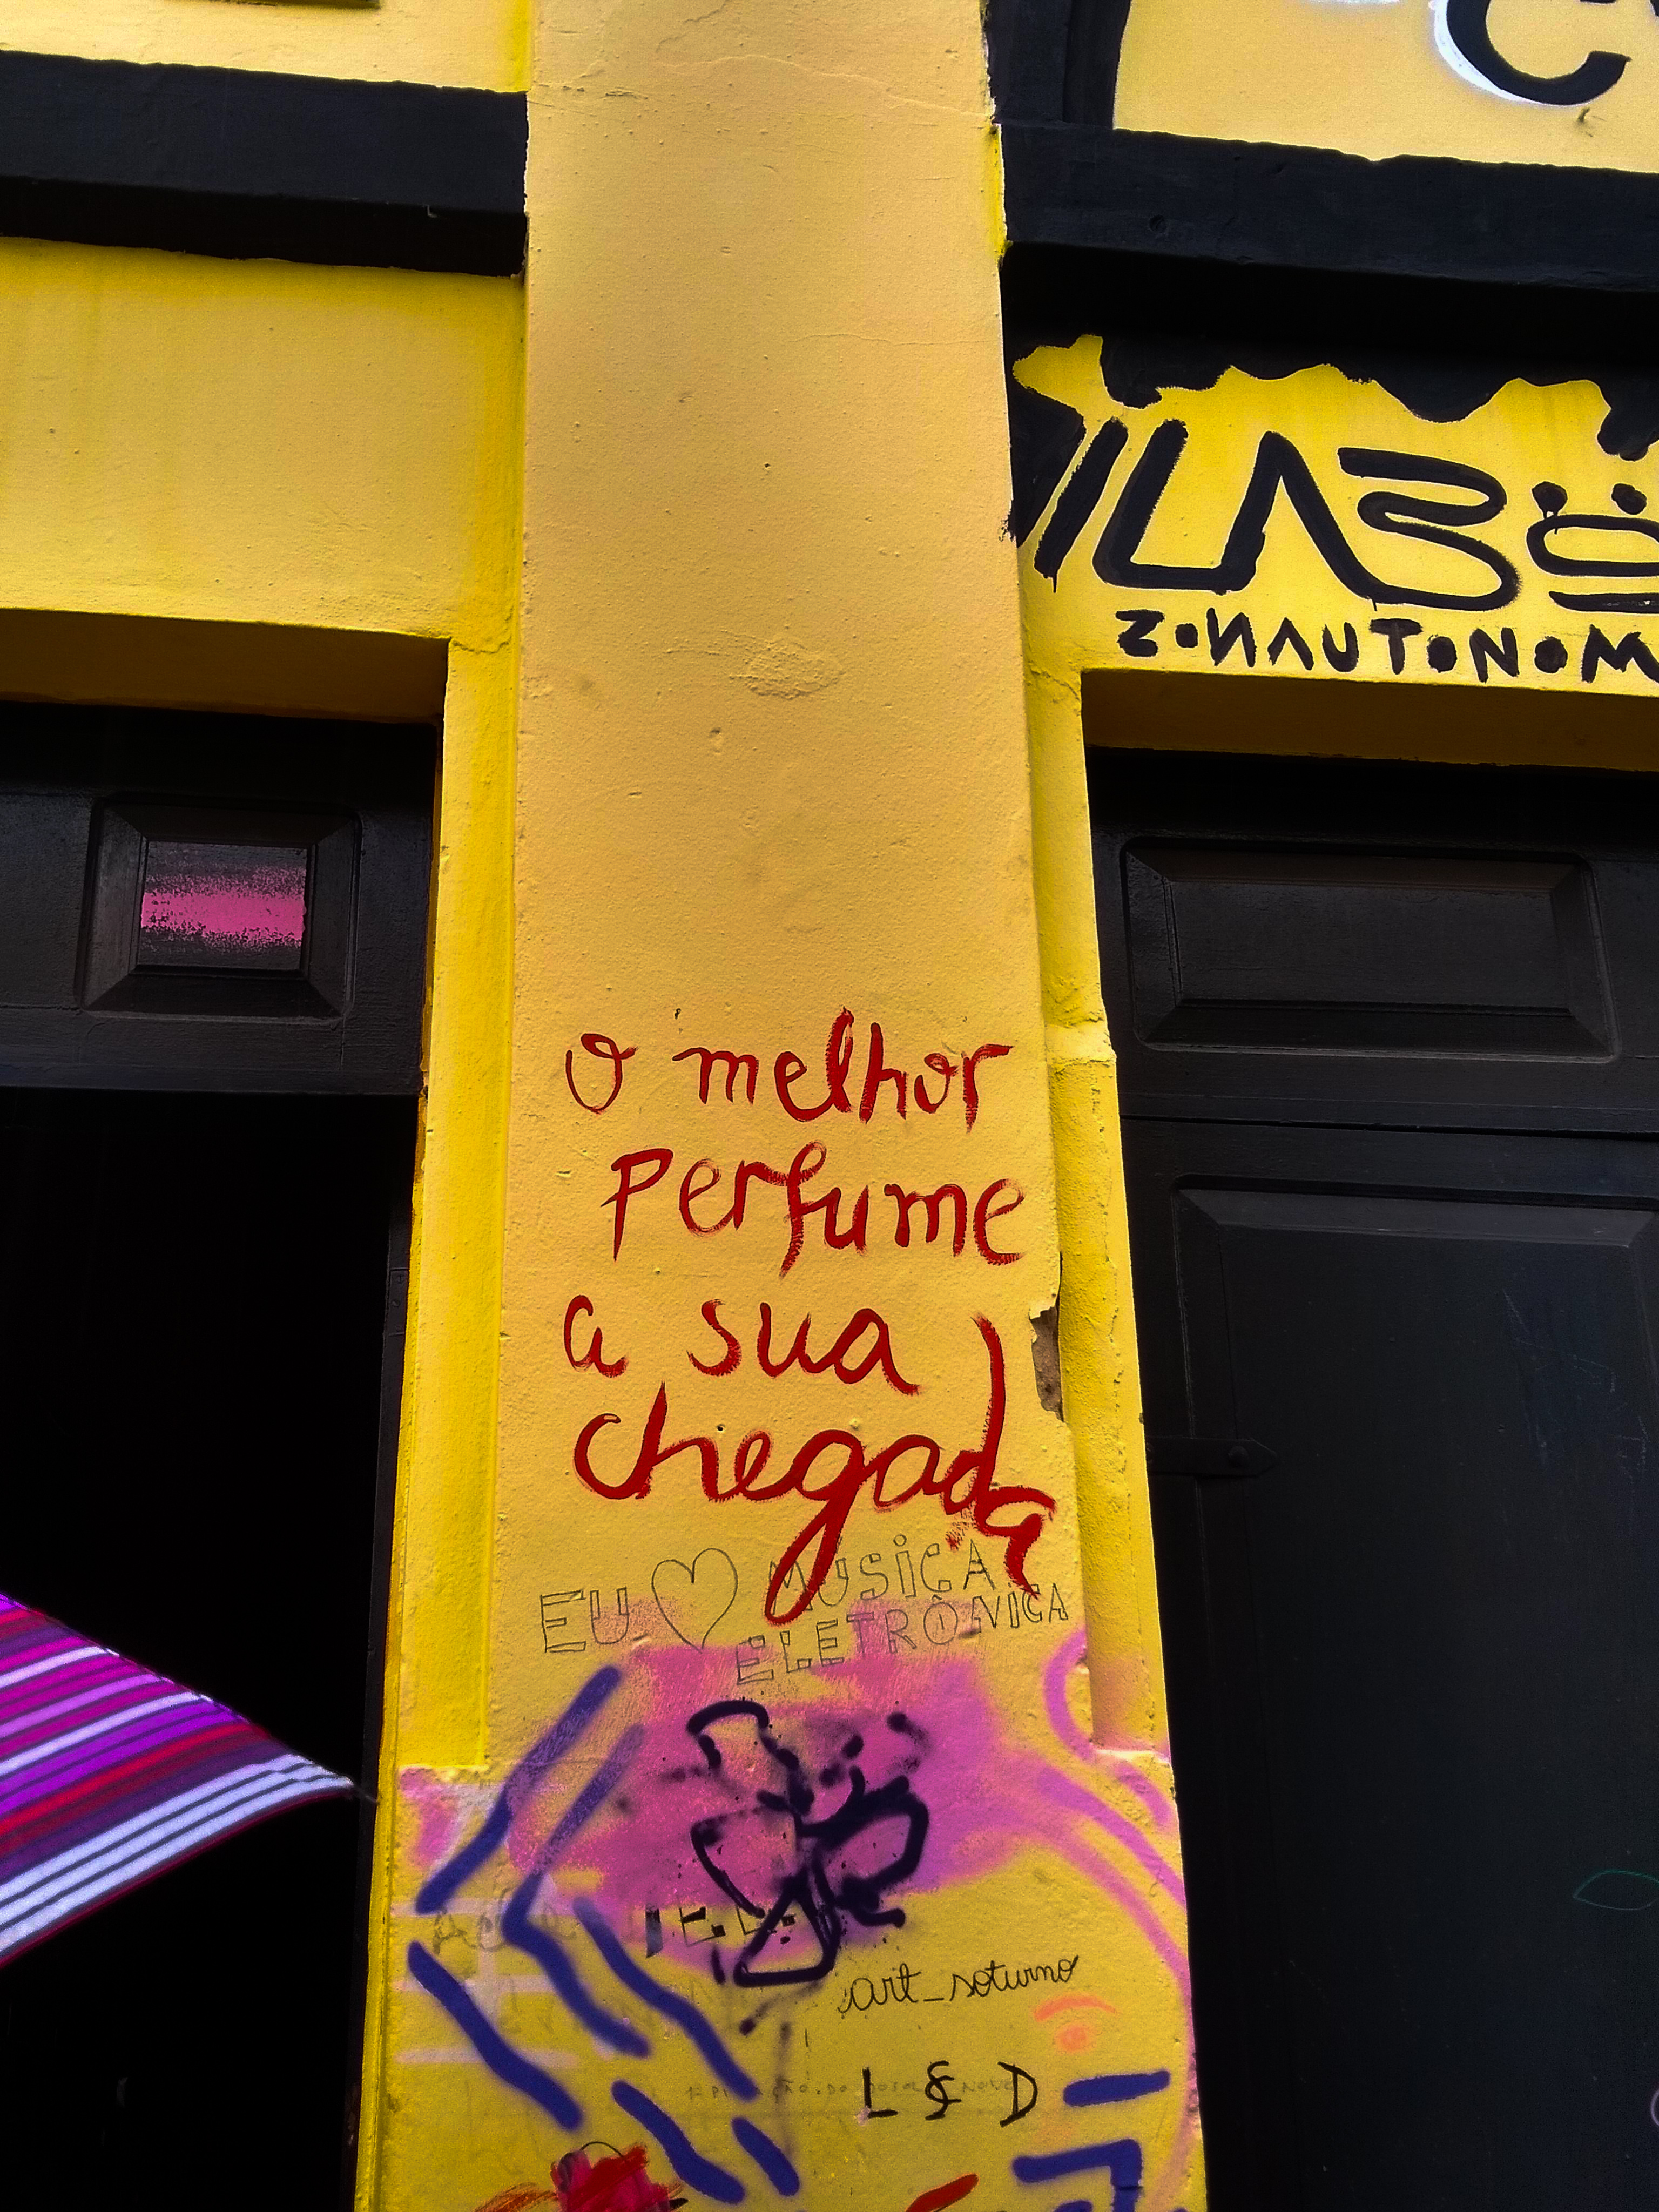 C
ILABö
ZONAUTONOM
o melhor
perfume
a sua
chegada
EU MUSICA
ELETRÔNICA
art_soturno
L & D